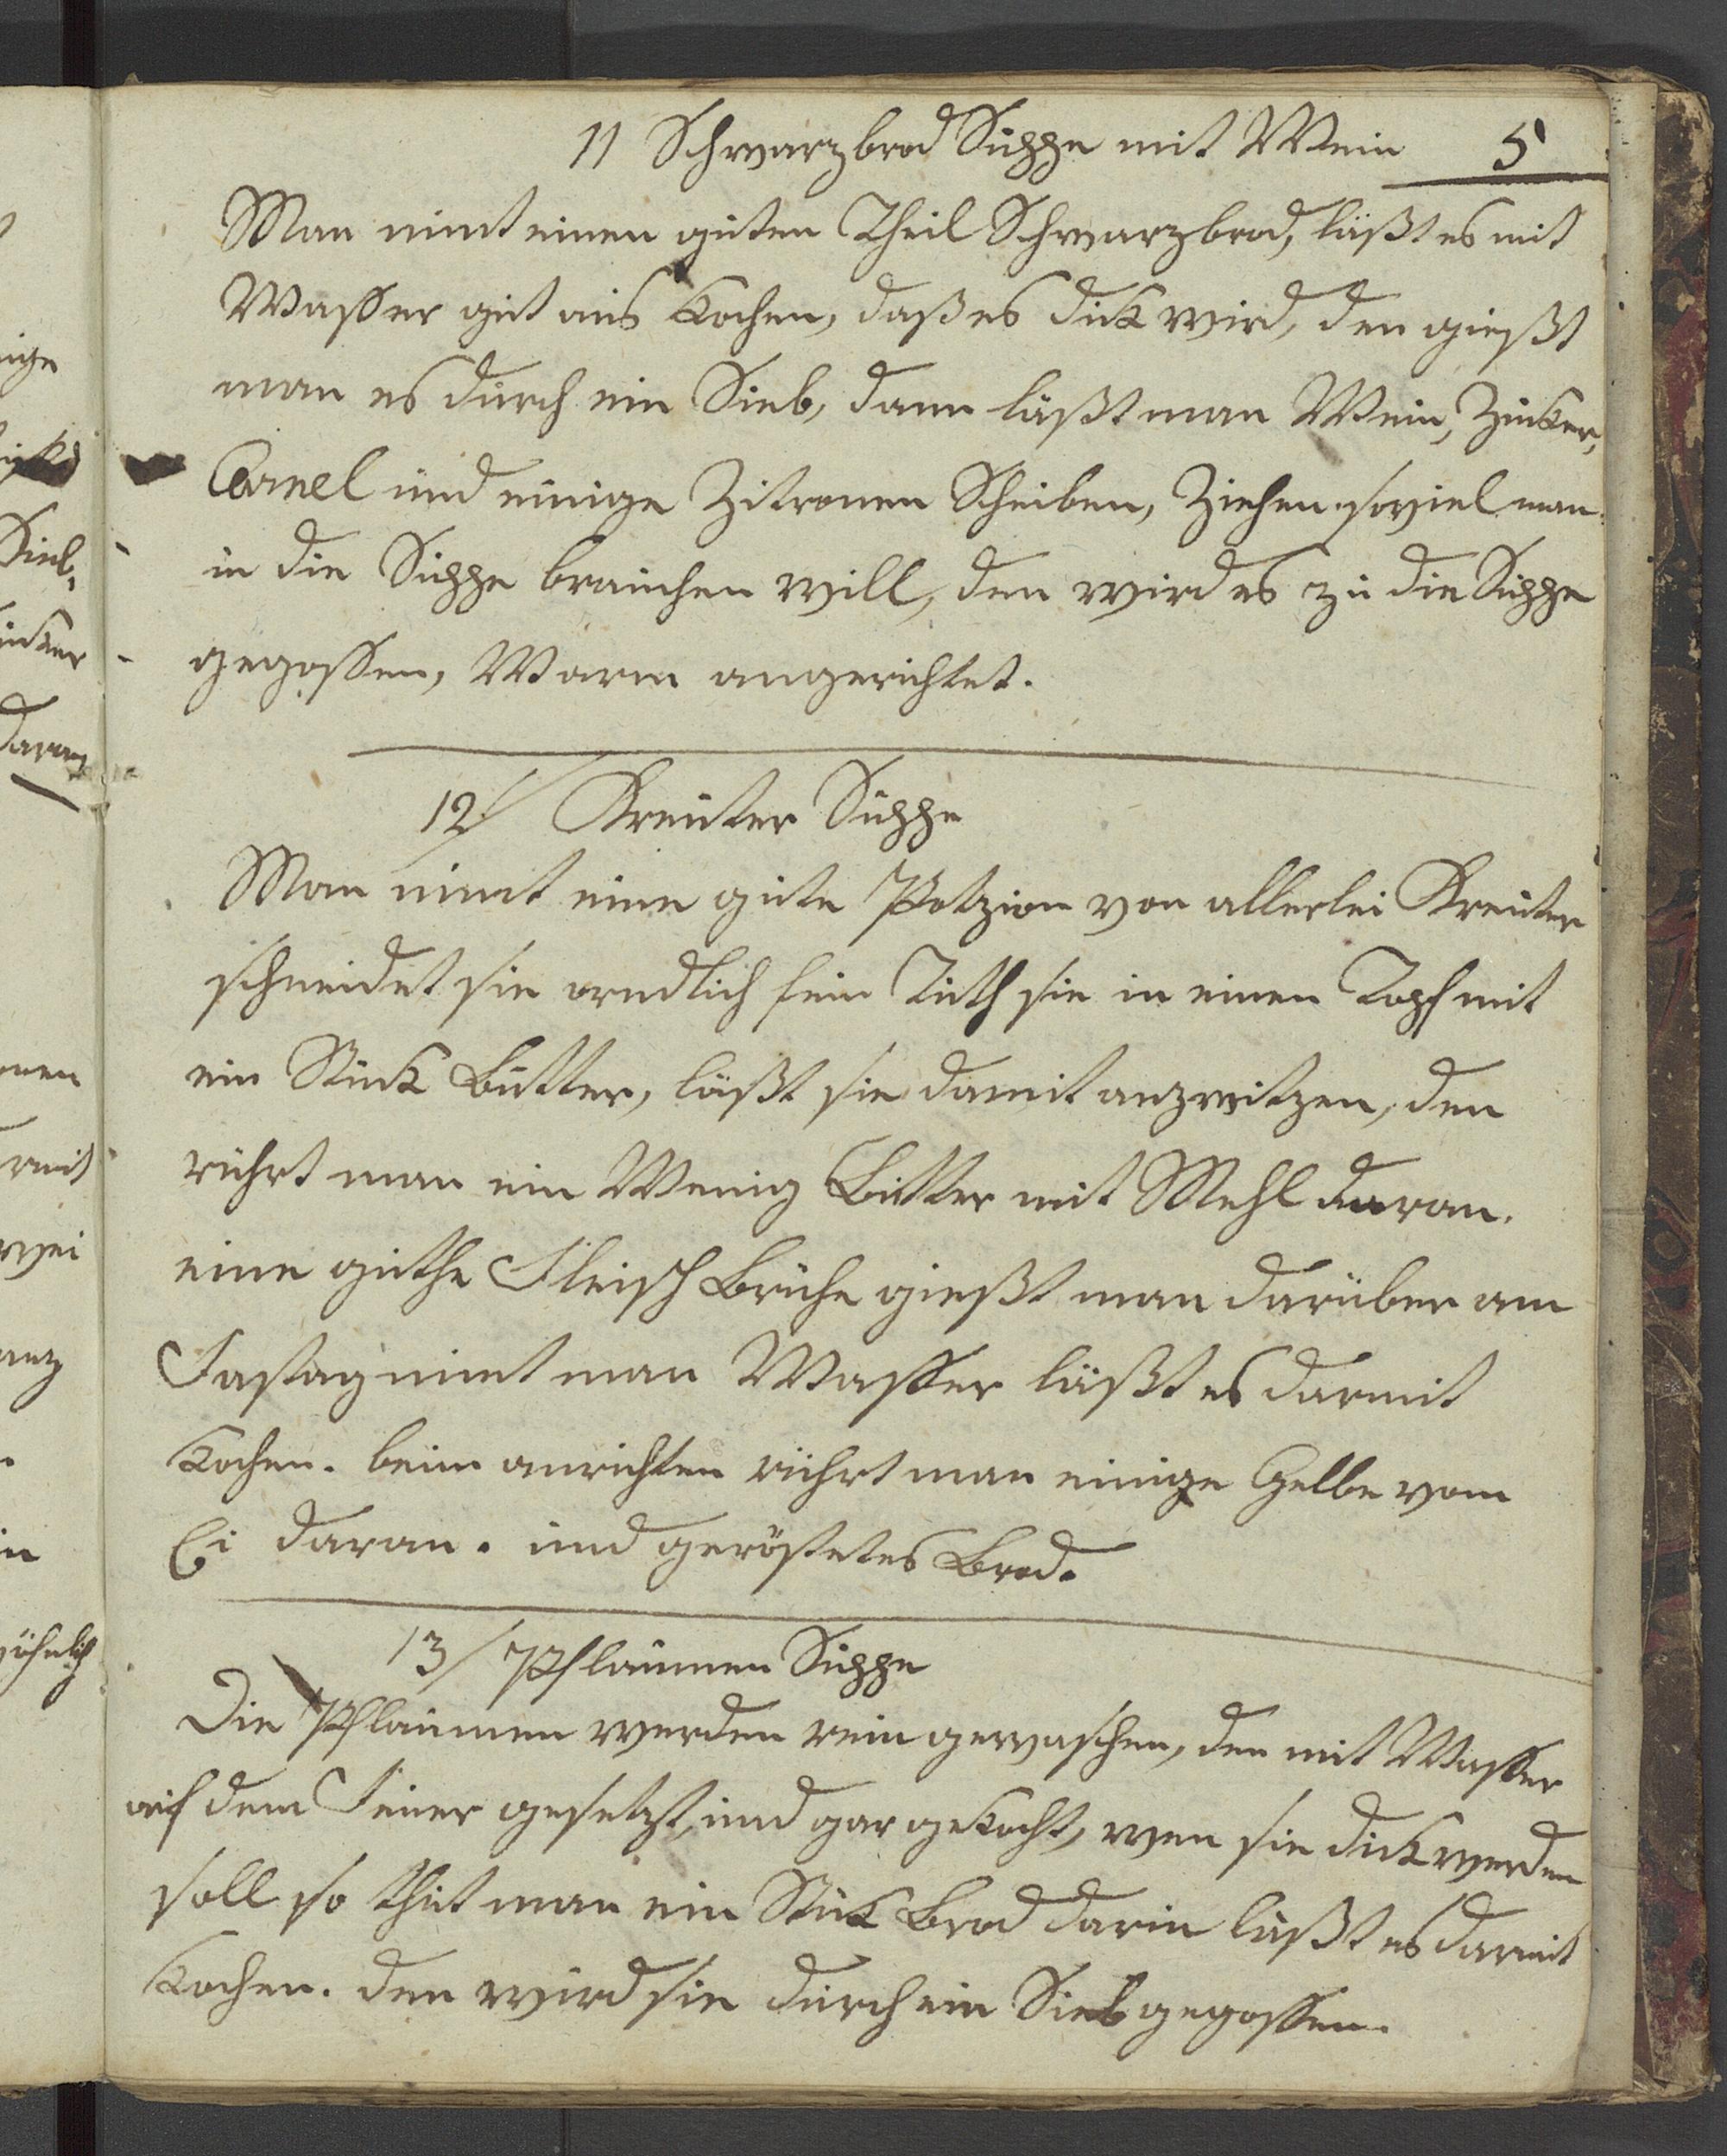 11 Schwarzbrod Suppe mit Wein 5
Man nimt einen guten Theil Schwarzbrod, läßt es mit
Wasser gut aus Kochen, daß es dick wird, den gießt
man es durch ein Sieb, dann läßt man Wein, Zucker,
Canel und einige Zitronen Scheiben, Ziehen soviel man
in die Suppe brauchen will, den wird es zu die Suppe
gegossen, Warm angerichtet.
12/ Kreuter Suppe
Man nimt eine gute Potzion von allerlei Kreuter
schneidet sie orndlich fein Tuth sie in einen Topf mit
ein Stück Butter, läßt sie damit anzwitzen, den
rührt man ein Wenig Butter mit Mehl daran.
eine guthe Fleisch Brühe gießt man darüber am
Fastag nimt man Wasser läßt es darmit
Kochen. beim anrichten rührt man einige Gelbe vom
Ei daran. und geröstetes Brod.
13/ Pflaumen Suppe
Die Pflaumen werden rein gewaschen, den mit Wasser
auf dem Feuer gesetzt, und gar gekocht, wen sie dick werden
soll so thut man ein Stück Brod darin läßt es darmit
Kochen. den wird sie durch ein Sieb gegossen.